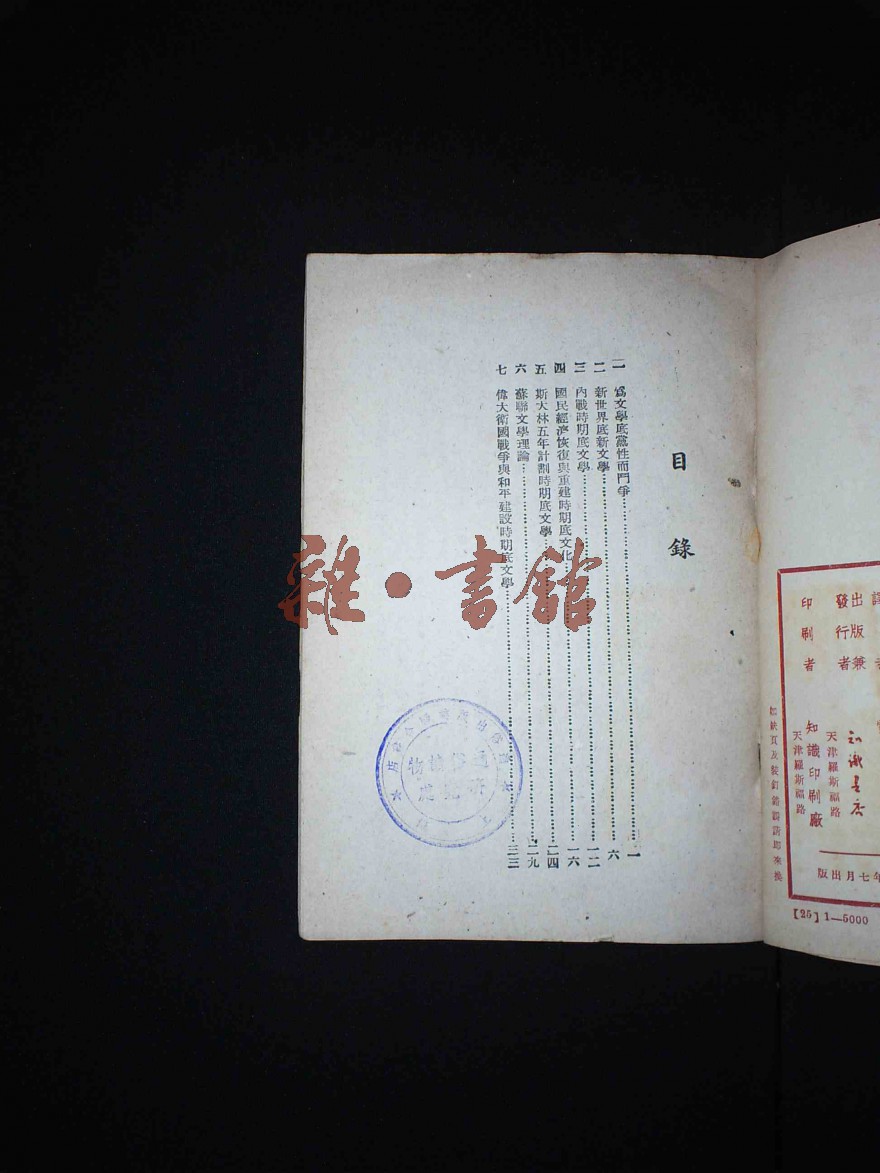 目錄
一 爲文學底黨性而鬥爭……一
二 新世界底新文學……六
三 內戰時期底文學……一二
四 國民經濟恢復與重建時期底文化……一六
五 斯大林五年計劃時期底文學……二四
六 蘇聯文學理論……二九
七 偉大衛國戰爭與和平建設時期底文學……三三
雜·書館
譯
出版兼
發行者
知識書店
天津羅斯福路
印刷者
知識印刷廠
天津羅斯福路
年七月出版
[25] 1—5000